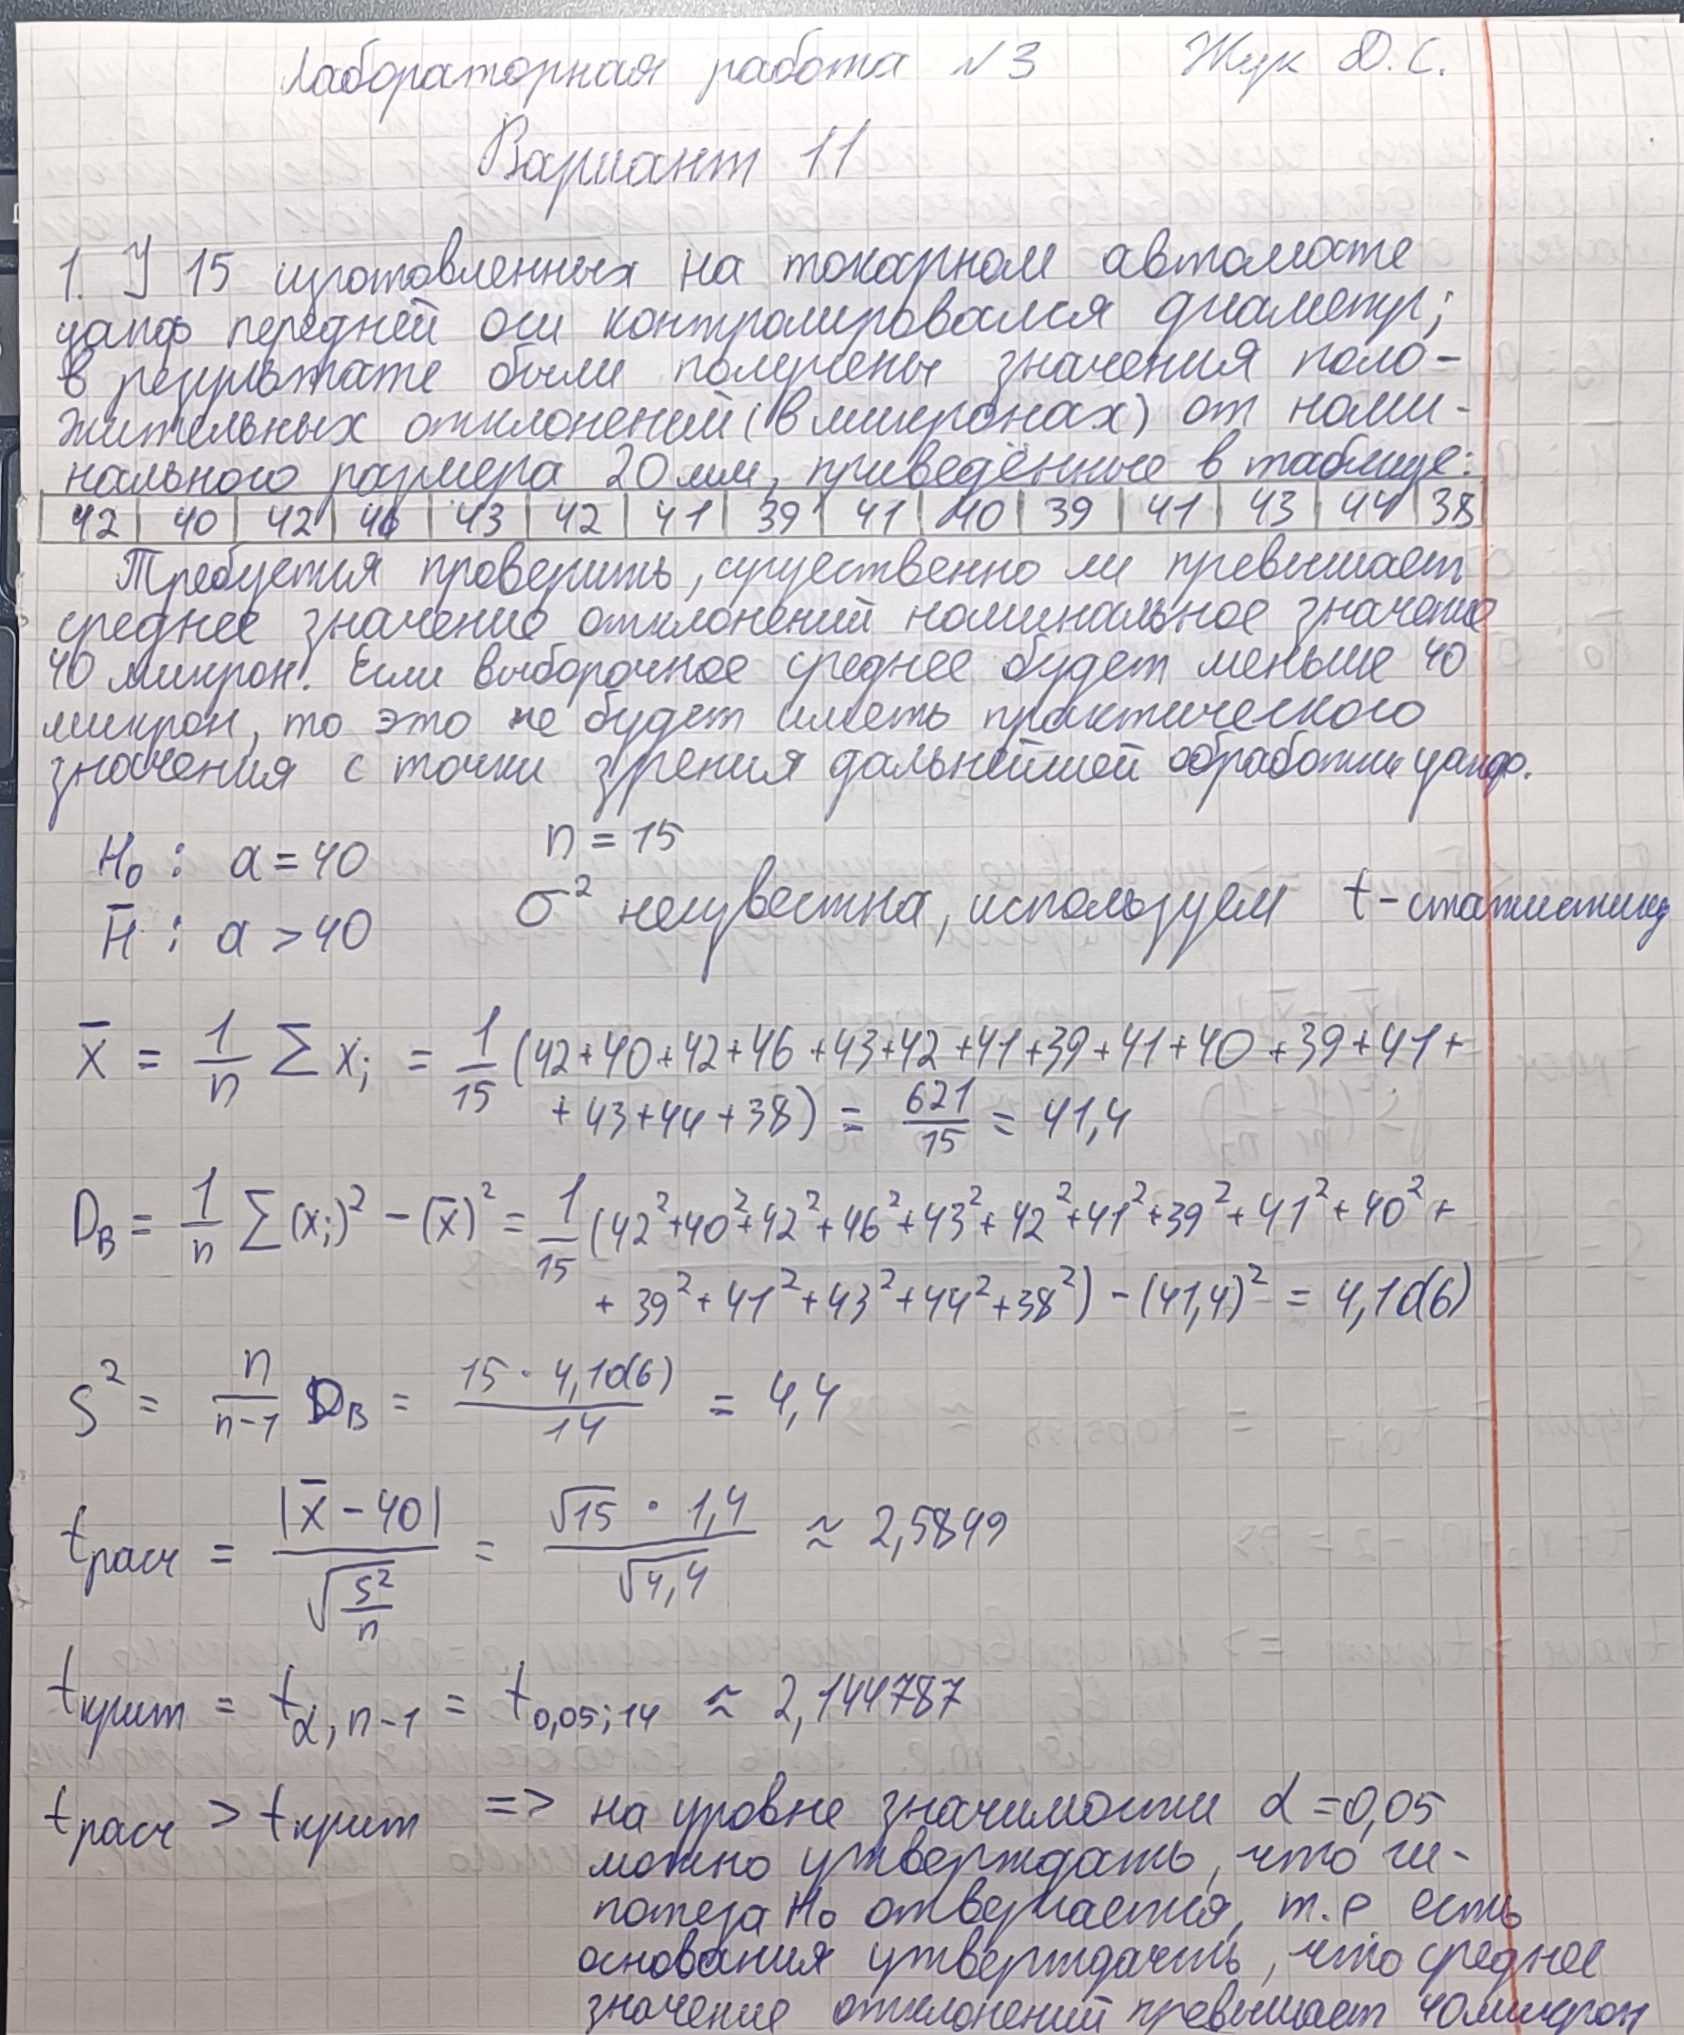 Лабораторная работа №3 Жук Д.С.
Вариант 11
1. У 15 изготовленных на токарном автомате
цапф передней оси контролировался диаметр;
в результате были получены значения поло-
жительных отклонений (в микронах) от номи-
нального размера 20 мм, приведённые в таблице:
42 40 42 46 43 42 41 39 41 40 39 41 43 44 38
Требуется проверить, существенно ли превышает
среднее значение отклонений номинальное значение
40 микрон. Если выборочное среднее будет меньше 40
микрон, то это не будет иметь практического
значения с точки зрения дальнейшей обработки цапф.
H₀ : a = 40 n = 15
H̅ : a > 40 σ² неизвестна, используем t-статистику
x̅ = 1/n ∑ xᵢ = 1/15 (42+40+42+46+43+42+41+39+41+40+39+41+
+43+44+38) = 621/15 = 41,4
D_в = 1/n ∑(xᵢ)² - (x̅)² = 1/15 (42²+40²+42²+46²+43²+42²+41²+39²+41²+40²+
+39²+41²+43²+44²+38²) - (41,4)² = 4,10(6)
S² = n/(n-1) D_в = (15 · 4,10(6))/14 = 4,4
t_расч = |x̅ - 40|/√(S²/n) = (√15 · 1,4)/√4,4 ≈ 2,5849
t_крит = t_α,n-1 = t_0,05;14 ≈ 2,144787
t_расч > t_крит => на уровне значимости α = 0,05
можно утверждать, что ги-
потеза H₀ отвергается, т.е есть
основания утверждать, что среднее
значение отклонений превышает 40 микрон